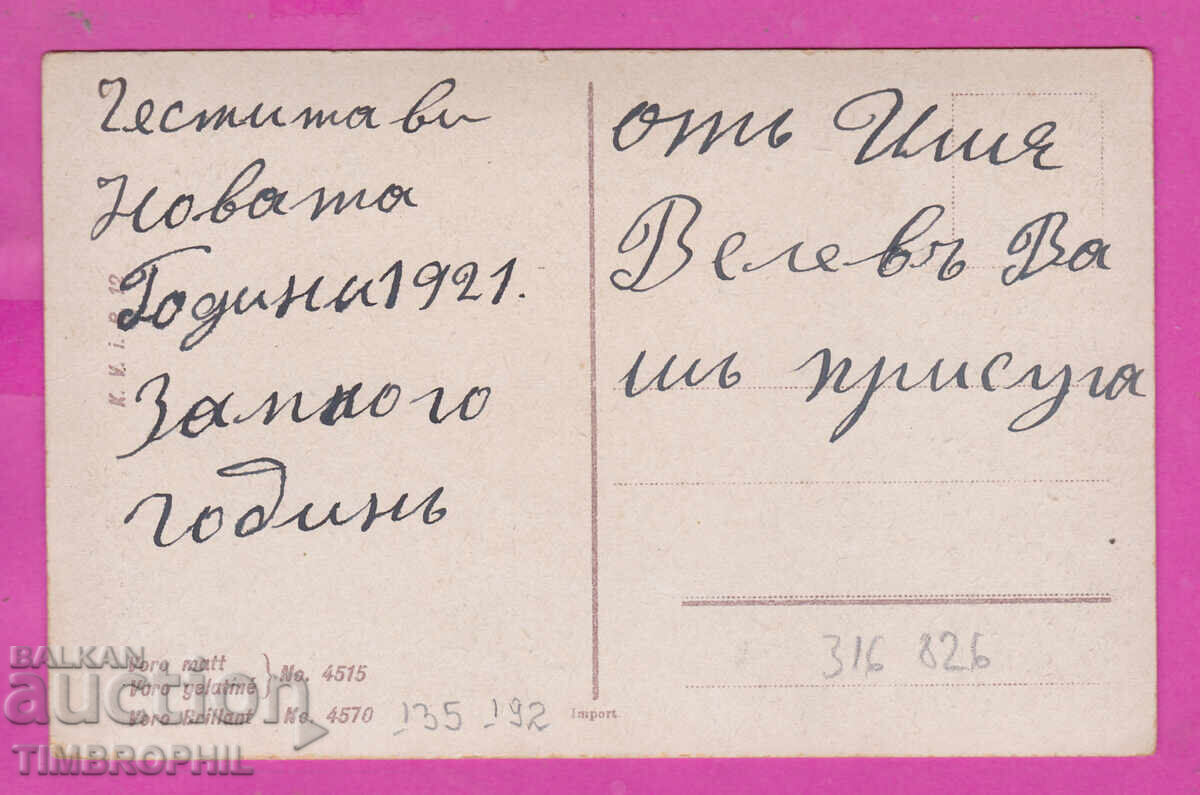 Честита ви
Новата
Години 1921.
Замного
годинь
отъ Илия
Велевъ Ва
шъ присуга
K. V. i. B. 12
Voro matt
Voro gelatiné } No. 4515
Voro Brillant No. 4570
135 192
Import
316 826
BALKAN
auction
TIMBROPHIL